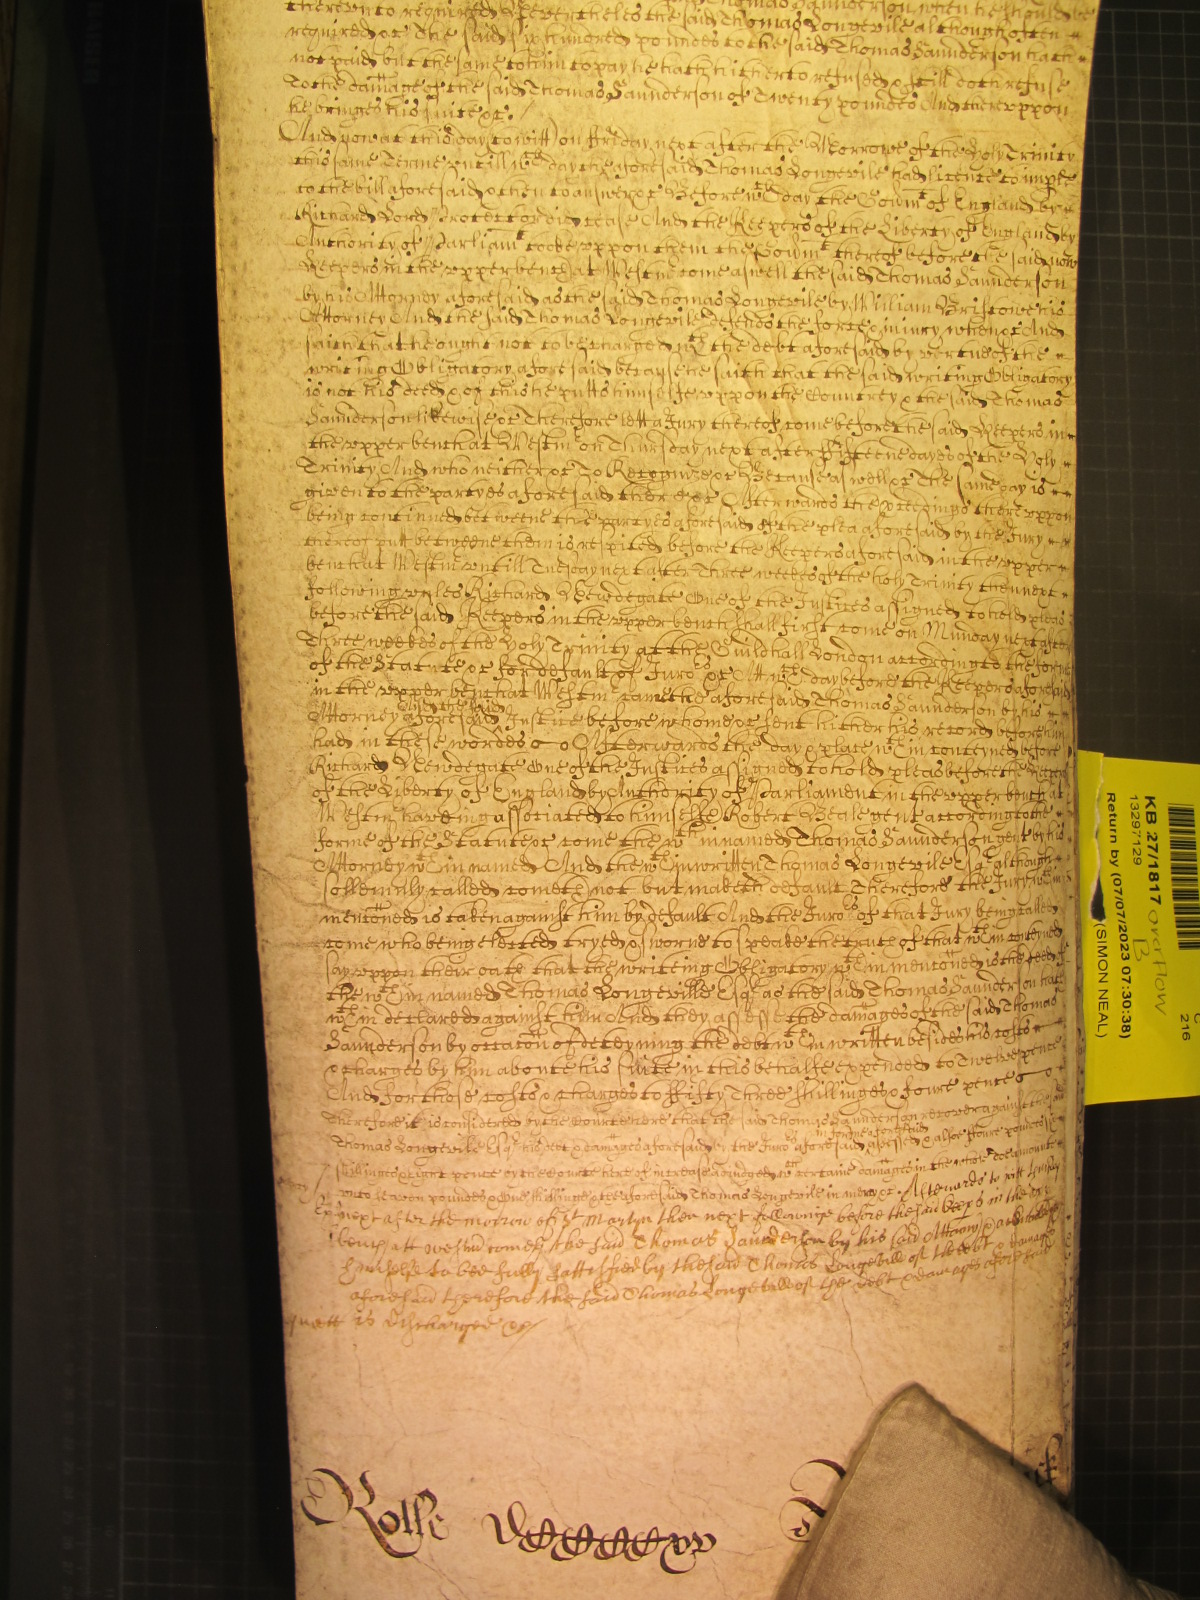 thereunto required Nevertheles the said Thomas Longevile although often
required &c The said six hundred poundes to the said Thomas Saunderson hath
not paid but the same to him to pay he hath hitherto refused & still doth refuse
To the damage of the said Thomas Saunderson of Twenty poundes And thereuppon
he bringes his suite &c
And now at this day to witt on Friday next after the Morrowe of the Holy Trinity
this same Terme untill wch day the aforesaid Thomas Longevile had licence to imple
to the bill aforesaid & then to answer &c Before wch day the Govmt of England by
Richard Lord Protector did cease And the Keepers of the Liberty of England by
Authority of Parliamt tooke uppon them the Govmt thereof before the said now
Keepers in the upper bench at Westm come aswell the said Thomas Saunderson
by his Attorney aforesaid as the said Thomas Longevile by William Bristowe his
Attorney And the said Thomas Longevile defends the force & iniury when &c And
saith that he ought not to be charged wth the debt aforesaid by vertue of the
writing Obligatory aforesaid because he saith that the said writing Obligatory
is not his deed & of this he putts himselfe uppon the Countrey & the said Thomas
Saunderson likewise &c Therefore lett a Jury thereof come before the said Keepers in
the upper bench at Westm on Thursday next after fifteene dayes of the Holy
Trinity And who neither &c To Recognize &c Because aswell &c The same day is
given to the partyes aforesaid there &c Afterwards the pceedings thereuppon
being continued betweene the partyes aforesaid of the plea aforesaid by the Jury
thereof putt betweene them is respited before the Keepers aforesaid in the upper
bench at Westm untill Tuesday next after Three weekes of the holy Trinity then next
following unles Richard Newdegate One of the Justices assigned to hold pleas
before the said Keepers in the upper bench shall first come on Munday next after
Three weekes of the Holy Trinity at the Guildhall London according to the forme
of the Statute &c for default of Juro's &c Att wch day before the Keepers aforesaid
in the upper bench at Westm came the aforesaid Thomas Saunderson by his
Attorney aforesaid And the said Justice before whome &c sent hither his record before him
had in these wordes Afterwards the day & place wthin conteyned before
Richard Newdegate One of the Justices assigned to hold pleas before the Keepers
of the Liberty of England by Authority of Parliament in the upper bench at
Westm having associated to himselfe Robert Beale gent according to the
forme of the Statute &c come the wthin named Thomas Saunderson gent by his
Attorney wthin named And the wthin written Thomas Longevile Esqr although
sollemnly called cometh not but maketh default Therefore the Jury wthin
mencõned is taken against him by default And the Juro's of that Jury being called
come who being elected tryed & sworne to speake the truth of that wthin conteyned
say uppon their oath that the writeing Obligatory wthin mencõned is the deed of
the wthin named Thomas Longeville Esqr as the said Thomas Saunderson hath
wthin declared against him And they assesse the damages of the said Thomas
Saunderson by occacõn of deteyning the debt wthin written besides his costs
& charges by him about his suite in this behalfe expended to Twelve pence
And for those costs & charges to Fifty Three shillinges & foure pence
Therefore it is considered by the Courte here that the said Thomas Saunderson recover against the said
Thomas Longevile Esqr his debt & damages aforesaid by the Juro's aforesaid in forme aforesaid assessed & alsoe Foure poundes
shillinges & eight pence by the Courte here of increase adiudged wch certaine damages in the whole doe amounte
unto Seaven poundes & One shillinge & the aforesaid Thomas Longevile in mercy &c Afterwards to witt
next after the morrow of St Martyn then next following before the said keeps in the upp
bench att westm cometh the said Thomas Saunderson by his said Attorny & acknowledgeth
himselfe to bee fully sattisfied by the said Thomas Longevile of the debt & damages
aforesaid therefore the said Thomas Longevile of the debt & damages aforesaid
quett is discharged &c
Rolle
KB 27/1817 overflow
B
13297129
Return by (07/07/2023 07:30:38)
(SIMON NEAL)
216